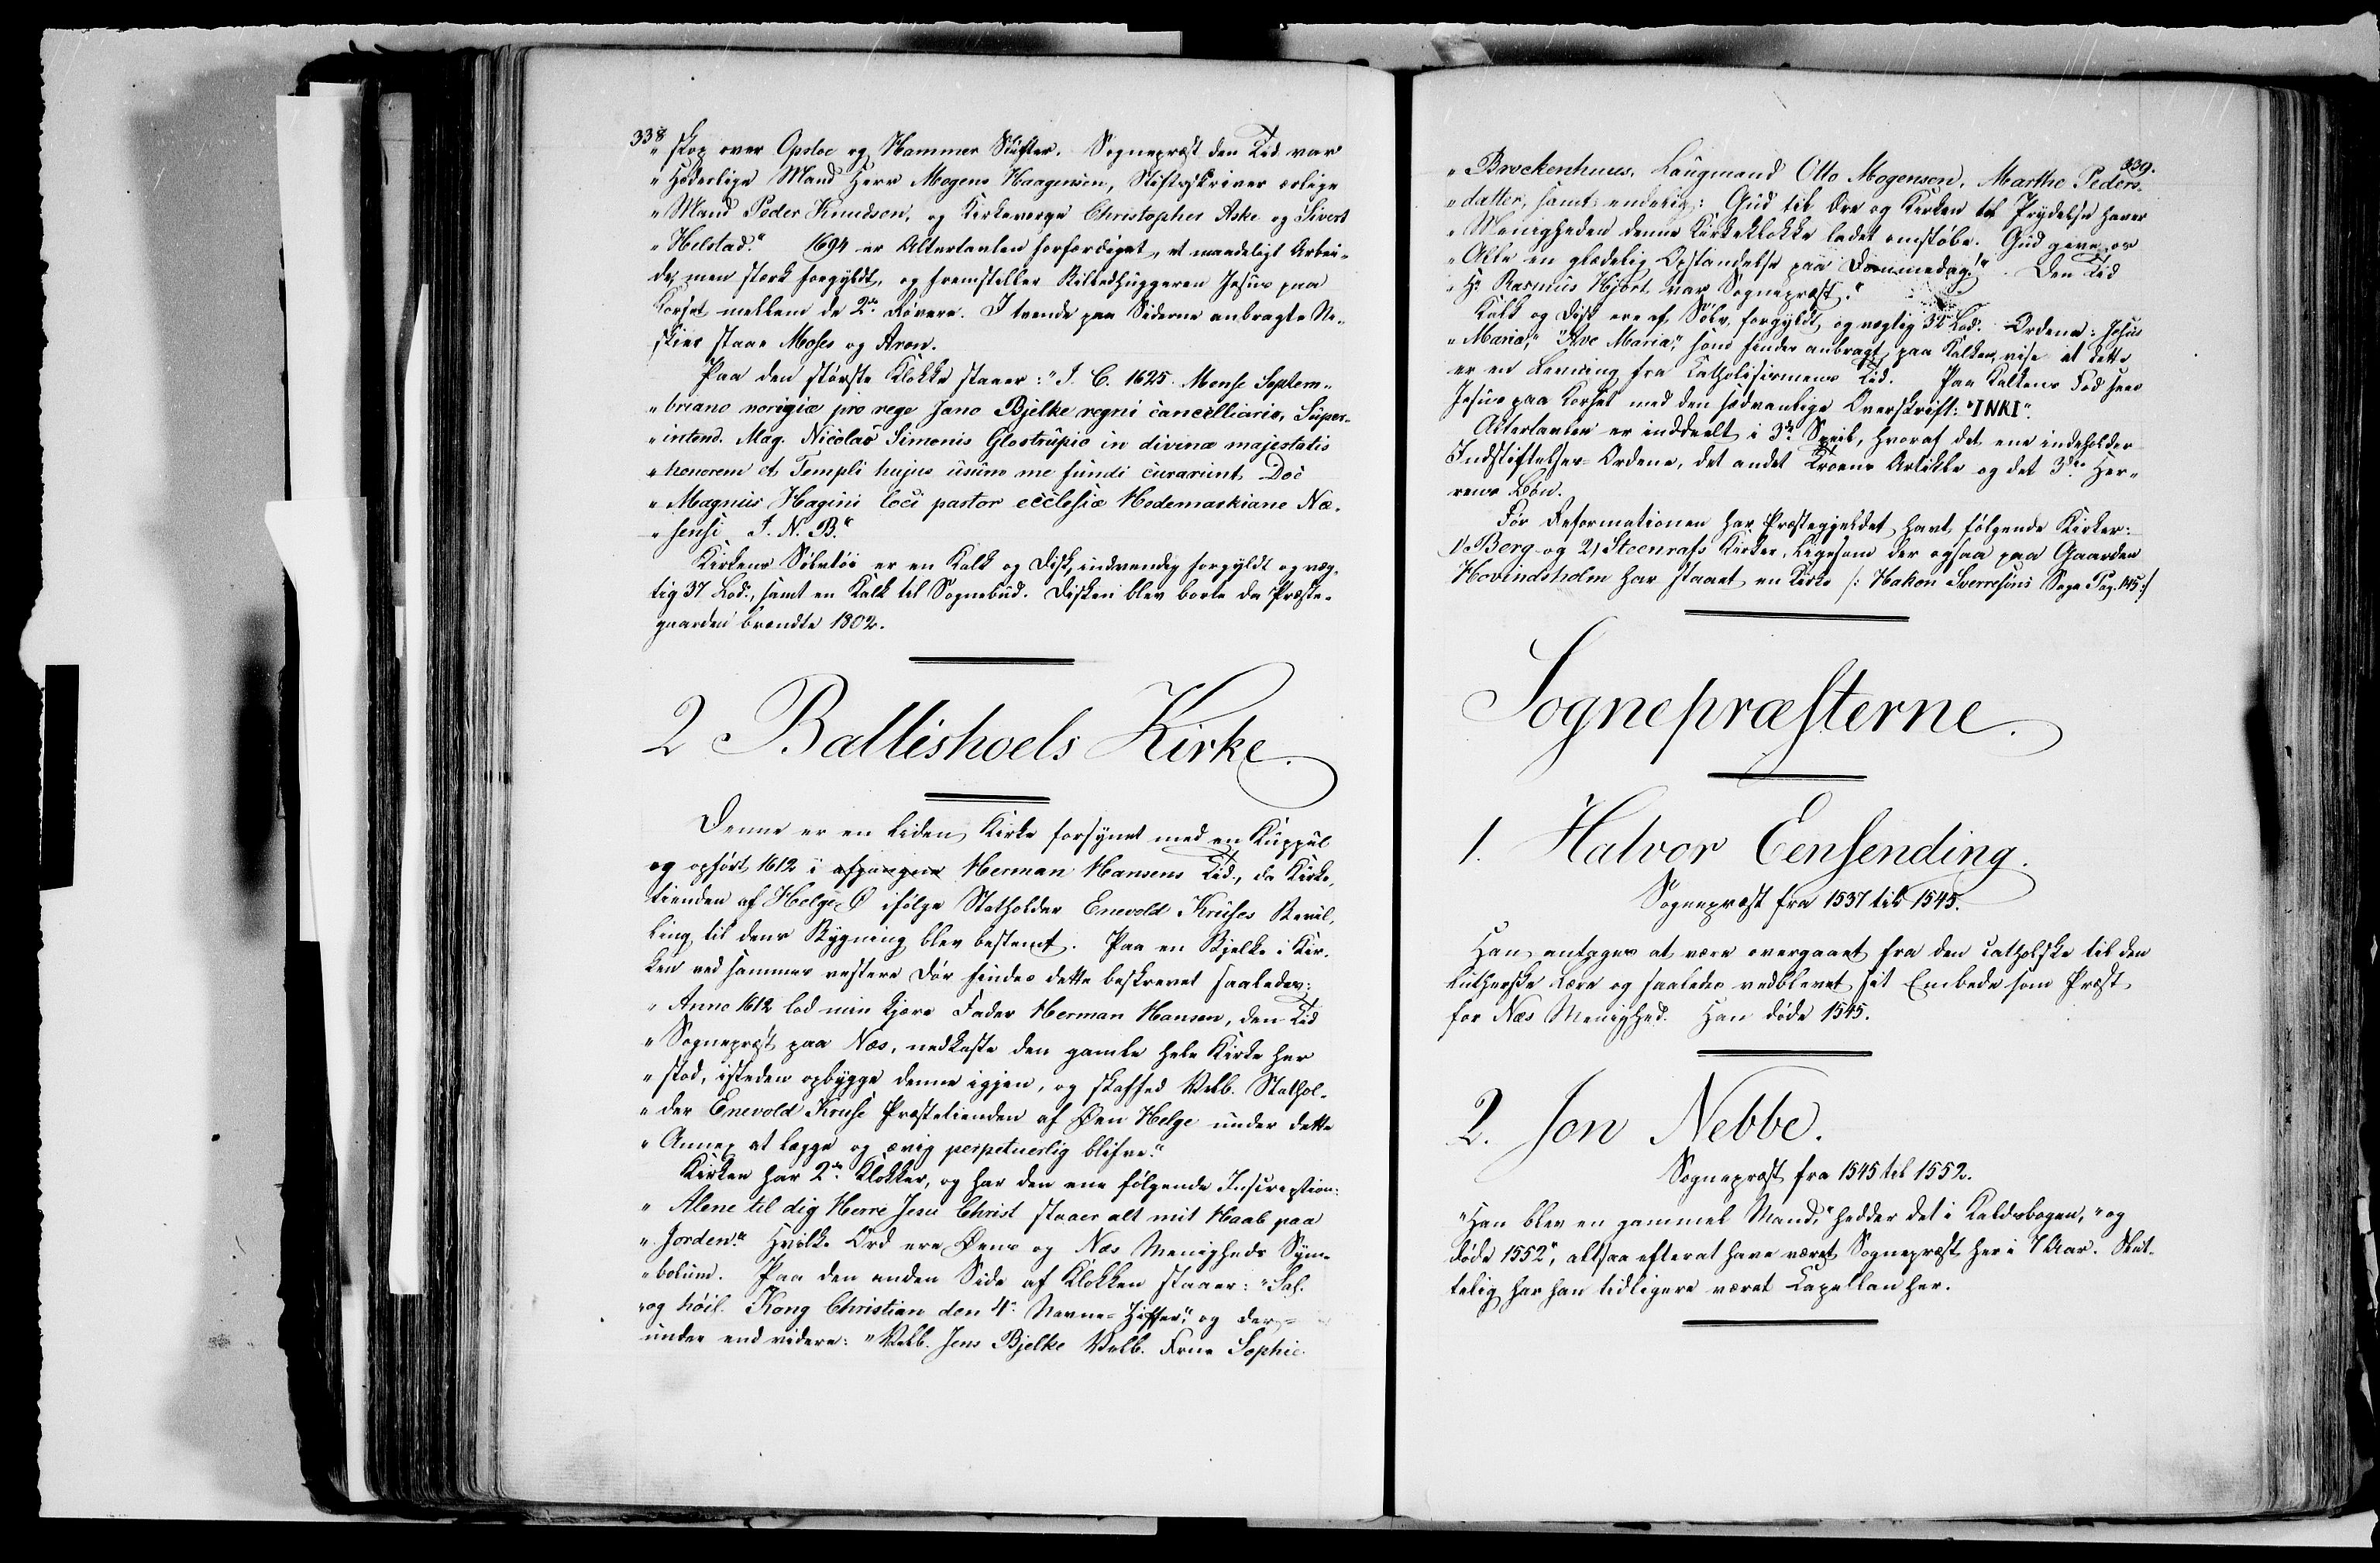 338
„skop over Opsloe og Hammer Stifter. Sognepræst den Tid var
„Hæderlige Mand Herr Mogens Haagensen, Stiftsskriver ærlige
„Mand Peder Knudson, og Kirkeverge Christopher Aske og Sivert
„Helstad." 1694 er Altertavlen forfærdiget, et maadeligt Arbei-
de, men stærk forgyldt, og fremstiller Billedhuggeren Jesus paa
Korset mellem de 2de Røvere. I tvende paa Siderne anbragte Ni-
skier staae Moses og Aron.
Paa den største Klokke staaer: "I. C. 1625. Mense Septem-
„briano norigiæ pro rege Jano Bjelke regni cancelliario, Super-
„intend. Mag. Nicolao Simonis Glostrupio in divinæ majestatis
„honorem et Templi hujus usum me fundi curarunt Doc
„Magnus Hagini loci pastor ecclesiæ Hedemarkiane Næ-
„sensi I. N. B."
Kirkens Sølvtøi er en Kalk og Disk, indvendig forgyldt og væg-
tig 37 Lod, samt en Kalk til Sognebud. Disken blev borte da Præste-
gaarden brændte 1802.
2 Ballishoels Kirke.
Denne er en liden Kirke forsynet med en Kuppul
og opført 1612 i Herman Hansens Tid, da Kirke-
tienden af Helge Ø ifølge Statholder Enevold Kruses Bevil-
ling til dens Bygning blev bestemt. Paa en Bjelke i Kir-
ken ved sammes vestere Dør findes dette beskrevet saaledes:
„Anno 1612 lod min kjære Fader Herman Hansen, den Tid
„Sognepræst paa Næs, nedkaste den gamle hele Kirke her
„stod, isteden opbygge denne igjen, og skaffed Velb. Stathol-
„der Enevold Kruse Præstetienden af Øen Helge under dette
„Annex at lægge og ævig perpetuerlig blifve."
Kirken har 2de Klokker, og har den ene følgende Inscription:
„Alene til dig Herre Jesu Christ staaer alt mit Haab paa
„Jorden." Hvilke Ord ere Øens og Næs Menigheds Sym-
„bolum. Paa den anden Side af Klokken staaer: "Sal.
„og høil. Kong Christian den 4des Navne-Ziffer," og der-
under end videre: "Velb. Jens Bjelke Velb. Frue Sophie
339.
„Brockenhuus, Laugmand Otto Mogensen, Marthe Peders-
„datter, samt endelig: Gud til Ære og Kirken til Prydelse haver
„Menigheden denne Kirkeklokke ladet omstøbe. Gud give os
„Alle en glædelig Opstandelse paa Dommedag!" Den Tid
„Hr Rasmus Hjort var Sognepræst."
Kalk og Disk ere af Sølv, forgyldt, og vægtig 32 Lod. Ordene: Jesus
„Maria", "Ave Maria", som findes anbragt paa Kalken, vise at dette
er en Levning fra Catholisismens Tid. Paa Kalkens Fod sees
Jesus paa Korset med den sædvanlige Overskrift: "INRI".
Altertavlen er inddeelt i 3de Speil, hvoraf det ene indeholder
Indstiftelses-Ordene, det andet Troens Artikle og det 3die Her-
rens Bøn.
Før Reformationen har Præstegjeldet havt følgende Kirker:
1) Berg og 2) Steenrafs Kirker, ligesom der ogsaa paa Gaarden
Hovindsholm har staaet en Kirke /: Hakon Sverresøns Saga Pag. 145:/
Sognepræsterne.
1. Halvor Eensending.
Sognepræst fra 1537 til 1545.
Han antages at være overgaaet fra den catholske til den
lutherske Lære og saaledes vedblevet sit Embede som Præst
for Næs Menighed. Han døde 1545.
2. Jon Nebbe.
Sognepræst fra 1545 til 1552.
"Han blev en gammel Mand," hedder det i Kaldsbogen, "og
døde 1552", altsaa efterat have været Sognepræst her i 7 Aar. Slut-
telig har han tidligere været Capellan her.